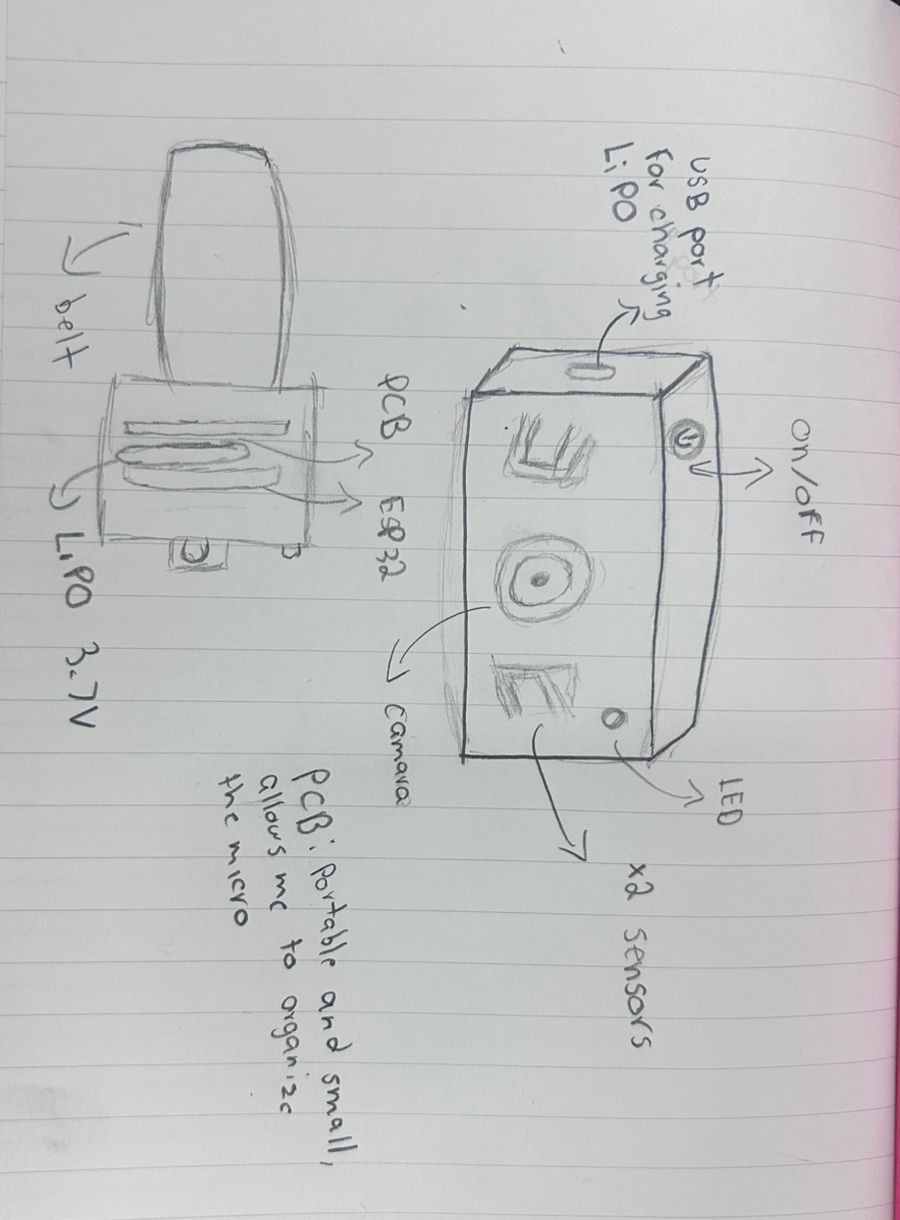 USB port
for charging
LiPO
on/off
LED
x2 sensors
camara
PCB
ESP32
belt
LiPO 3.7V
PCB: Portable and small,
allows me to organize
the micro